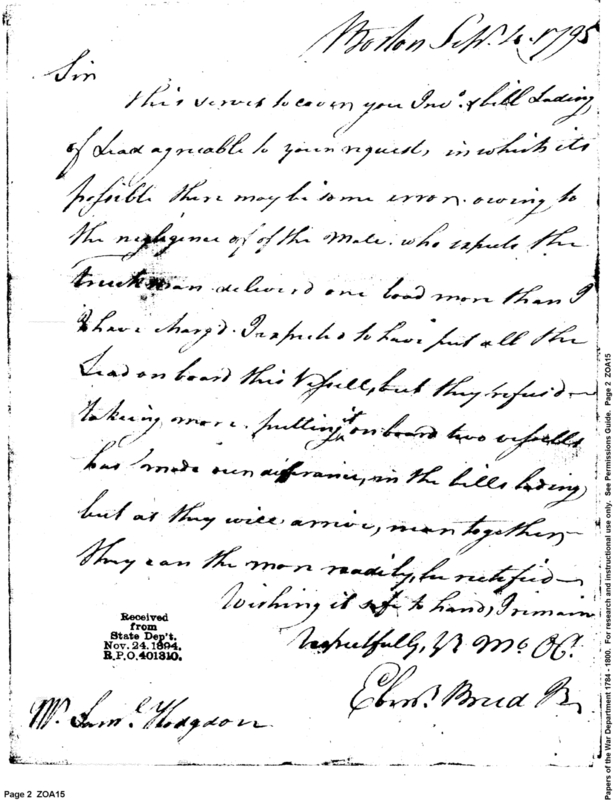 Boston Sepr. 4. 1795
Sir
This serves to cover you Invo. & bill Lading,
of Lead agreable to your request, in which its
possible there may be some error. owing to
the negligence of of the Mate. who expects the
truckman deliverd one load more than I
have charg'd. I expected to have put all the
Lead on board this Vessell, but they refused
takeing more. putting it on board two vessells
has made our differance, in the bills lading,
but as they will arrive, near together,
they can the more readily, be rectified
Wishing it safe to hand, I remain
respectfully, Yr Mo Ob.
Ebenr. Breed
Mr. Saml. Hodgdon
Received
from
State Dep't.
Nov. 24. 1894.
R.P.O. 401310.
Page 2 ZOA15
Papers of the War Department 1784 - 1800. For research and instructional use only. See Permissions Guide. Page 2 ZOA15